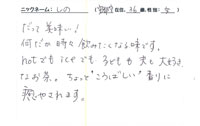 ニックネーム：しの （ 在住、36 歳、性別：女 ）
だって美味い！
何だか時々飲みたくなる味です。
hotでもiceでも子どもも夫も大好き
なお茶。ちょっと"こうばしい"香りに
癒やされます。